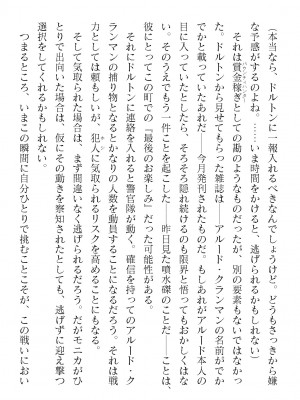 （本当なら、ドルトンに一報入れるべきなんでしょうけど。どうもさっきから嫌
な予感がするのよね……いま時間をかけると、逃げられるかも）
それは賞金稼ぎとしての勘のようなものだったが、別の要素もないではなかっ
た。ドルトンから見せてもらった雑誌は――アルード・クランマンの名前がでか
でかと載っていたあれだ――今月発刊されたもの。もしあれがアルード本人の
目に入っていたとしたら、そろそろ隠れ続けるのも限界と悟ってもおかしくはな
い。そのうえでもう一件ことを起こした――昨日見た噴水碑のことだ――ことは、
彼にとってこの町での「最後のお楽しみ」だった可能性がある。
それにドルトンに連絡を入れると警官隊が動く。確信を持ってのアルード・ク
ランマンの捕り物となるとかなりの人数を動員することになるだろう。それは戦
力としては頼もしいが、犯人に気取られるリスクを高めることにもなる。
そして気取られた場合は、まず間違いなく逃げられるだろう。だがモニカがひ
とりで出向いた場合は、仮にその動きを察知されたとしても、逃げずに迎え撃つ
選択をしてくれるかもしれない。
つまるところ、いまこの瞬間に自分ひとりで挑むことこそが、この戦いにおい